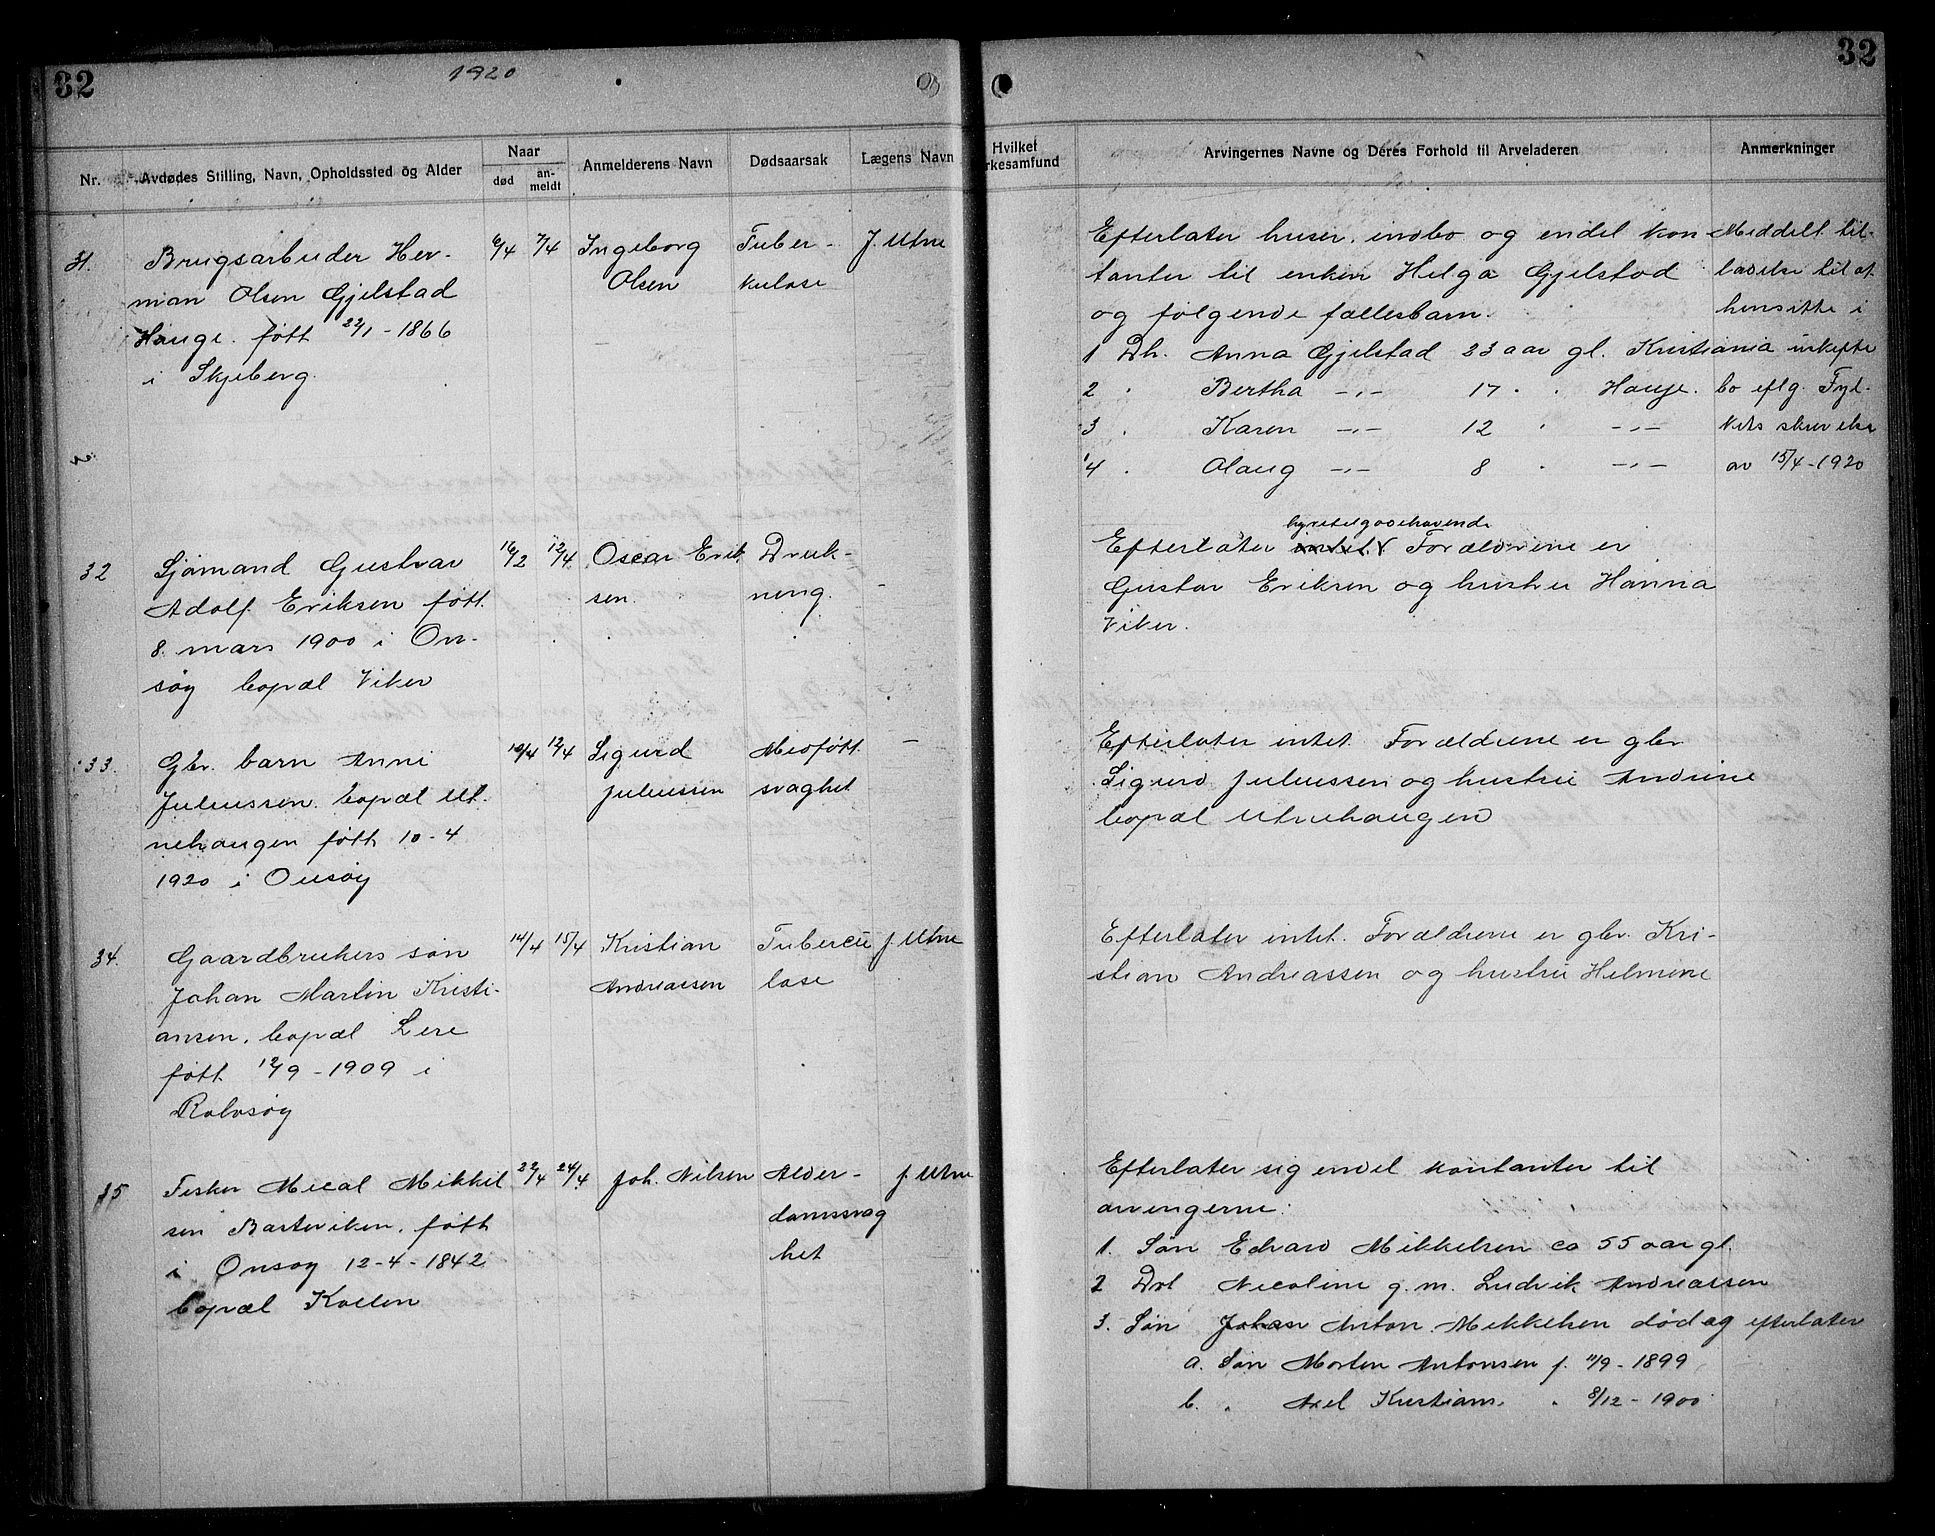 32
1920
32
Nr.
Avdødes Stilling, Navn, Opholdssted og Alder
Naar
død
an-
meldt
Anmelderens Navn
Dødsaarsak
Lægens Navn
Hvilket
rkesamfund
Arvingernes Navne og Deres Forhold til Arveladeren
Anmerkninger
31. Brugsarbeider Her- 6/4 7/4 Ingeborg Tuber- J. Utne
man Olsen Gjelstad Olsen kulose
Hauge. født 22/1-1866
i Skjeberg.
Efterlater huser, indbo og endel kon
tanter til enken Helga Gjelstad
og følgende fællesbarn.
1 Dh. Anna Gjelstad 23 aar gl. Kristiania
2 " Bertha -"- 17 " " Hauge.
3 " Karen -"- 12 " -"-
4 " Olaug -"- 8 " -"-
Meddelt til-
ladelse til at
hensitte i
uskiftet
bo eflg. Fyl-
kets skrivelse
av 15/4-1920
32 Sjømand Gustav 16/2 12/4 Oscar Erik Druk- -
Adolf Eriksen født sen. ning.
8 mars 1900 i On-
søy bopæl Viker
hyretilgodehavende
Efterlater intet. Forældrene er
Gustav Eriksen og hustru Hanna
Viker.
33. Gbr. barn Anni 10/4 12/4 Sigurd Medfødt -
Juliussen. bopæl Ut- Juliussen svaghet
nehaugen født 10-4
1920 i Onsøy
Efterlater intet. Forældrene er gbr
Sigurd Juliussen og hustru Andrine
bopæl Utnehaugen
34. Gaardbrukers søn 14/4 15/4 Kristian Tubercu J. Utne
Johan Martin Kristi- Andreassen lose
ansen, bopæl Lere
født 12/9-1909 i
Rolvsøy
Efterlater intet. Forældrene er gbr. Kri-
stian Andreassen og hustru Helmine
35 Fisker Mical Mikkel 22/4 24/4 Joh. Nilsen Alder- J. Utne
sen Basteviken, født domssvag
i Onsøy 12-4-1842 het
bopæl Kollen
Efterlater sig endel kontanter til
arvingerne:
1. Søn Edvard Mikkelsen ca 55 aar gl.
2 Dat Nicoline g.m. Ludvik Andreassen
3. Søn Johan Anton Mikkelsen død og efterlater
a. Søn Morten Antonsen f. 11/9-1899
b. " Axel Kristians. " 8/12-1900